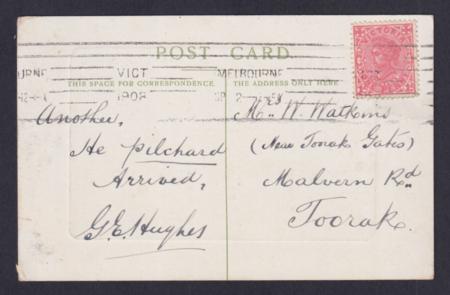 VICTORIA
POST CARD.
THIS SPACE FOR CORRESPONDENCE.
THE ADDRESS ONLY HERE
VICT MELBOURNE
1908
Another,
He Pilchard
Arrived,
G.E. Hughes
W. Watkins
(Near Toorak Gates)
Malvern Rd
Toorak.